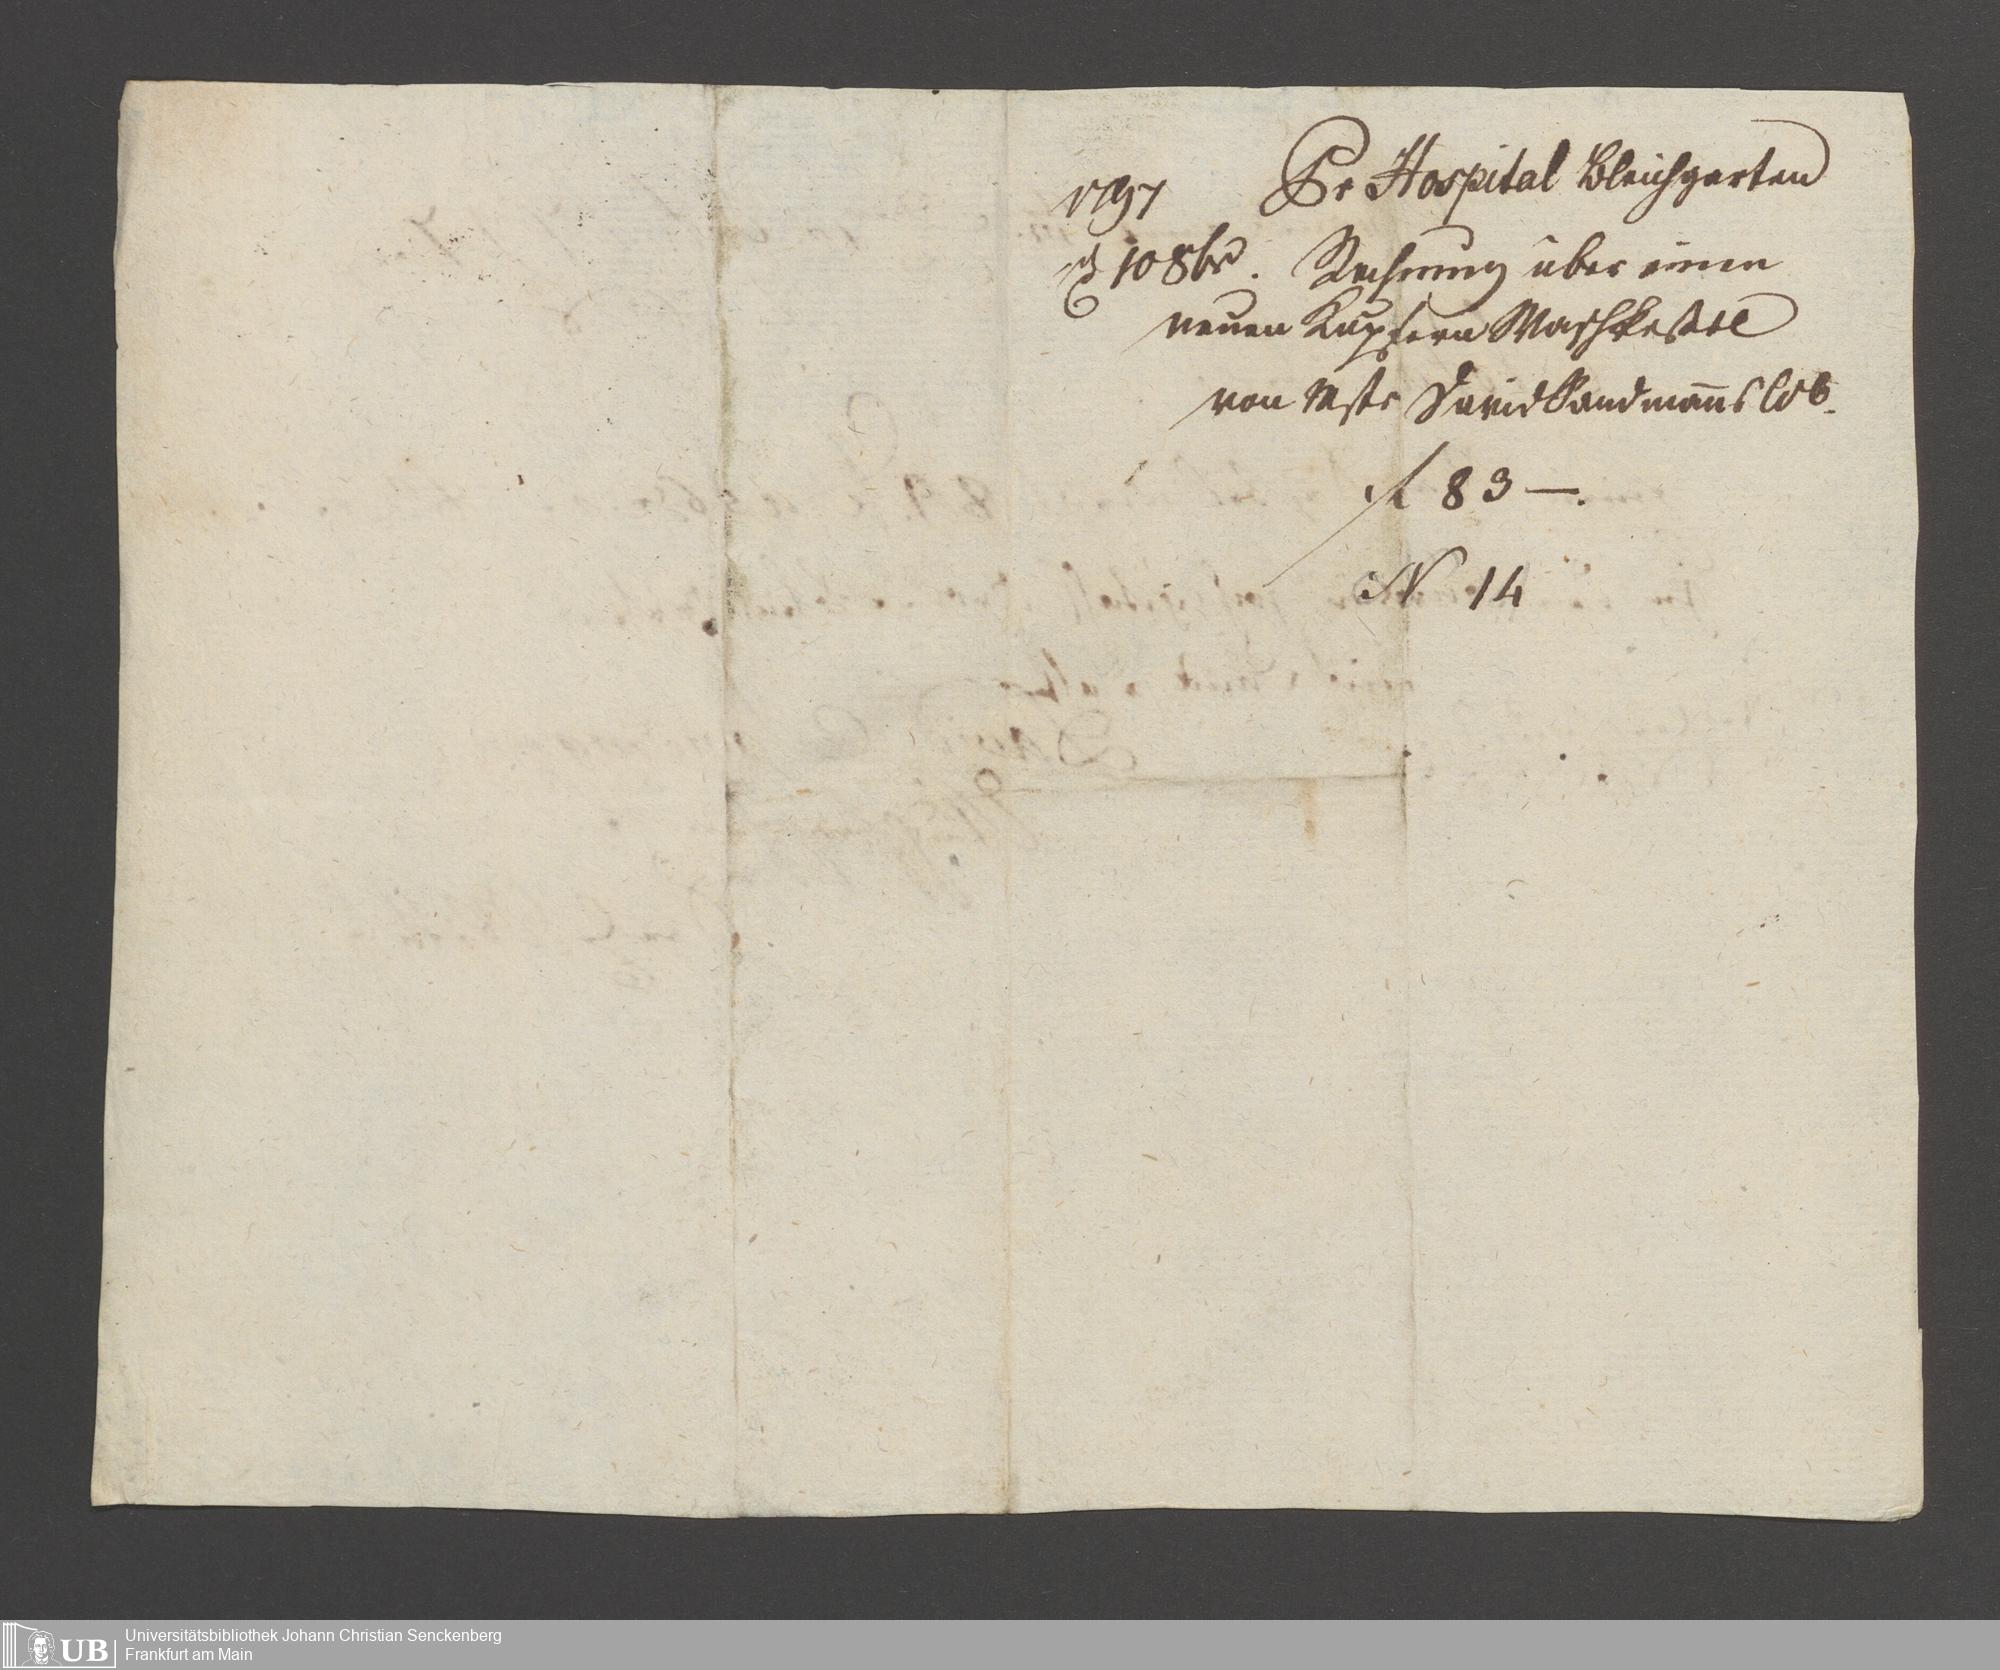 1797 Pr Hospital Bleichgarten
d 10 8br. Rechnung über einen
neuen Kupfern Waschkessel
von Mstr David Sandmanns
f 83 —.
N 14
UB
Universitätsbibliothek Johann Christian Senckenberg
Frankfurt am Main